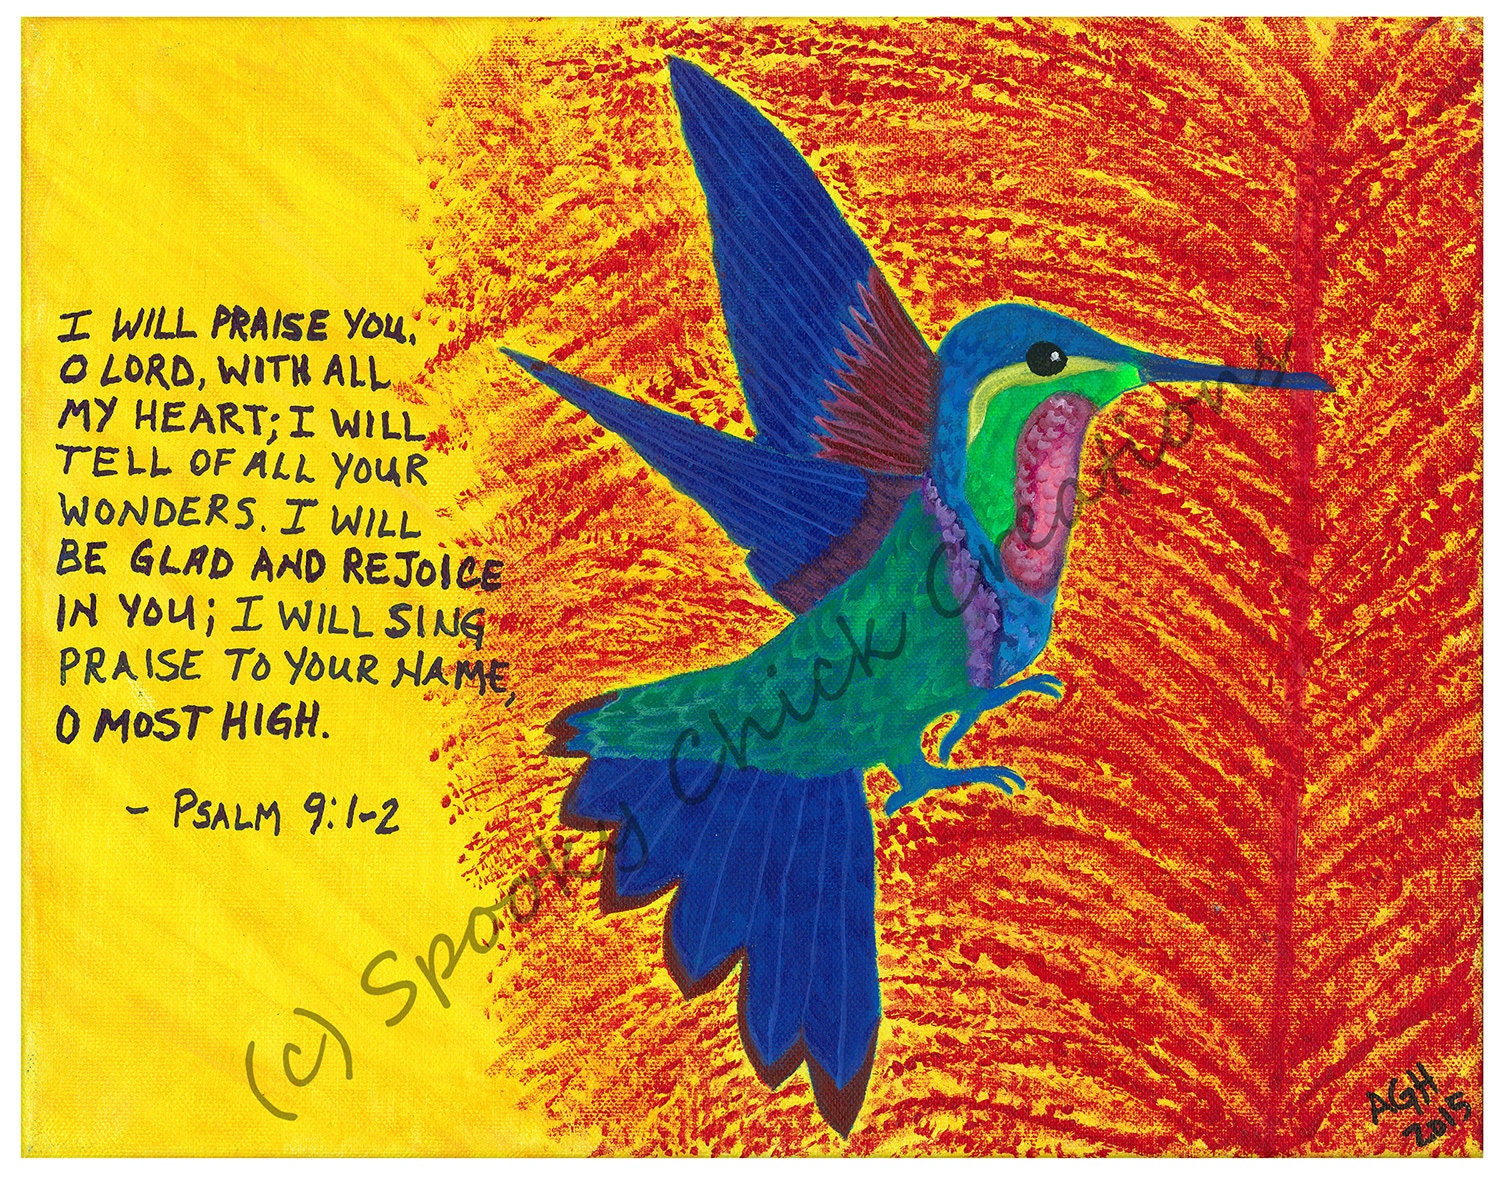 I WILL PRAISE YOU,
O LORD, WITH ALL
MY HEART; I WILL
TELL OF ALL YOUR
WONDERS. I WILL
BE GLAD AND REJOICE
IN YOU; I WILL SING
PRAISE TO YOUR NAME,
O MOST HIGH.
- PSALM 9:1-2
(c) Spooky Chick Creations
AGH
2015